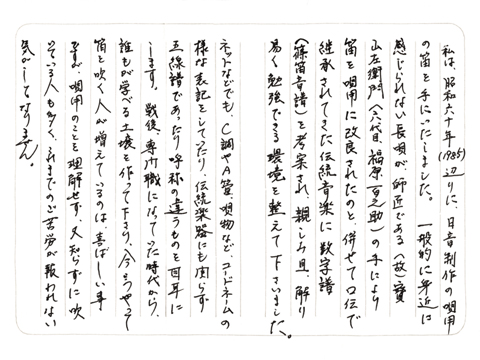 私は、昭和六十年(1985)辺りに、日音制作の唄用
の笛を手にいたしました。 一般的に身近に
感じられない長唄が師匠である(故)寶
山左衛門(六代目福原百之助)の手により
笛を唄用に改良されたのと、併せて口伝で
継承されてきた伝統音楽に数字譜
(篠笛音譜)を考案され、親しみ且、解り
易く勉強できる環境を整えて下さいました。
ネットなどでも、C調やA管、唄物など、コードネームの
様な表記をしており、伝統楽器にも関らず
五線譜であったり呼称の違うものを耳に
します。 戦後、専門職になっていた時代から、
誰もが学べる土壌を作って下さり、今こうやって
笛を吹く人が増えているのは、喜ばしい事
ですが、唄用のことを理解せず、又知らずに吹
いている人も多く、これまでのご苦労が報われない
気がしてなりません。